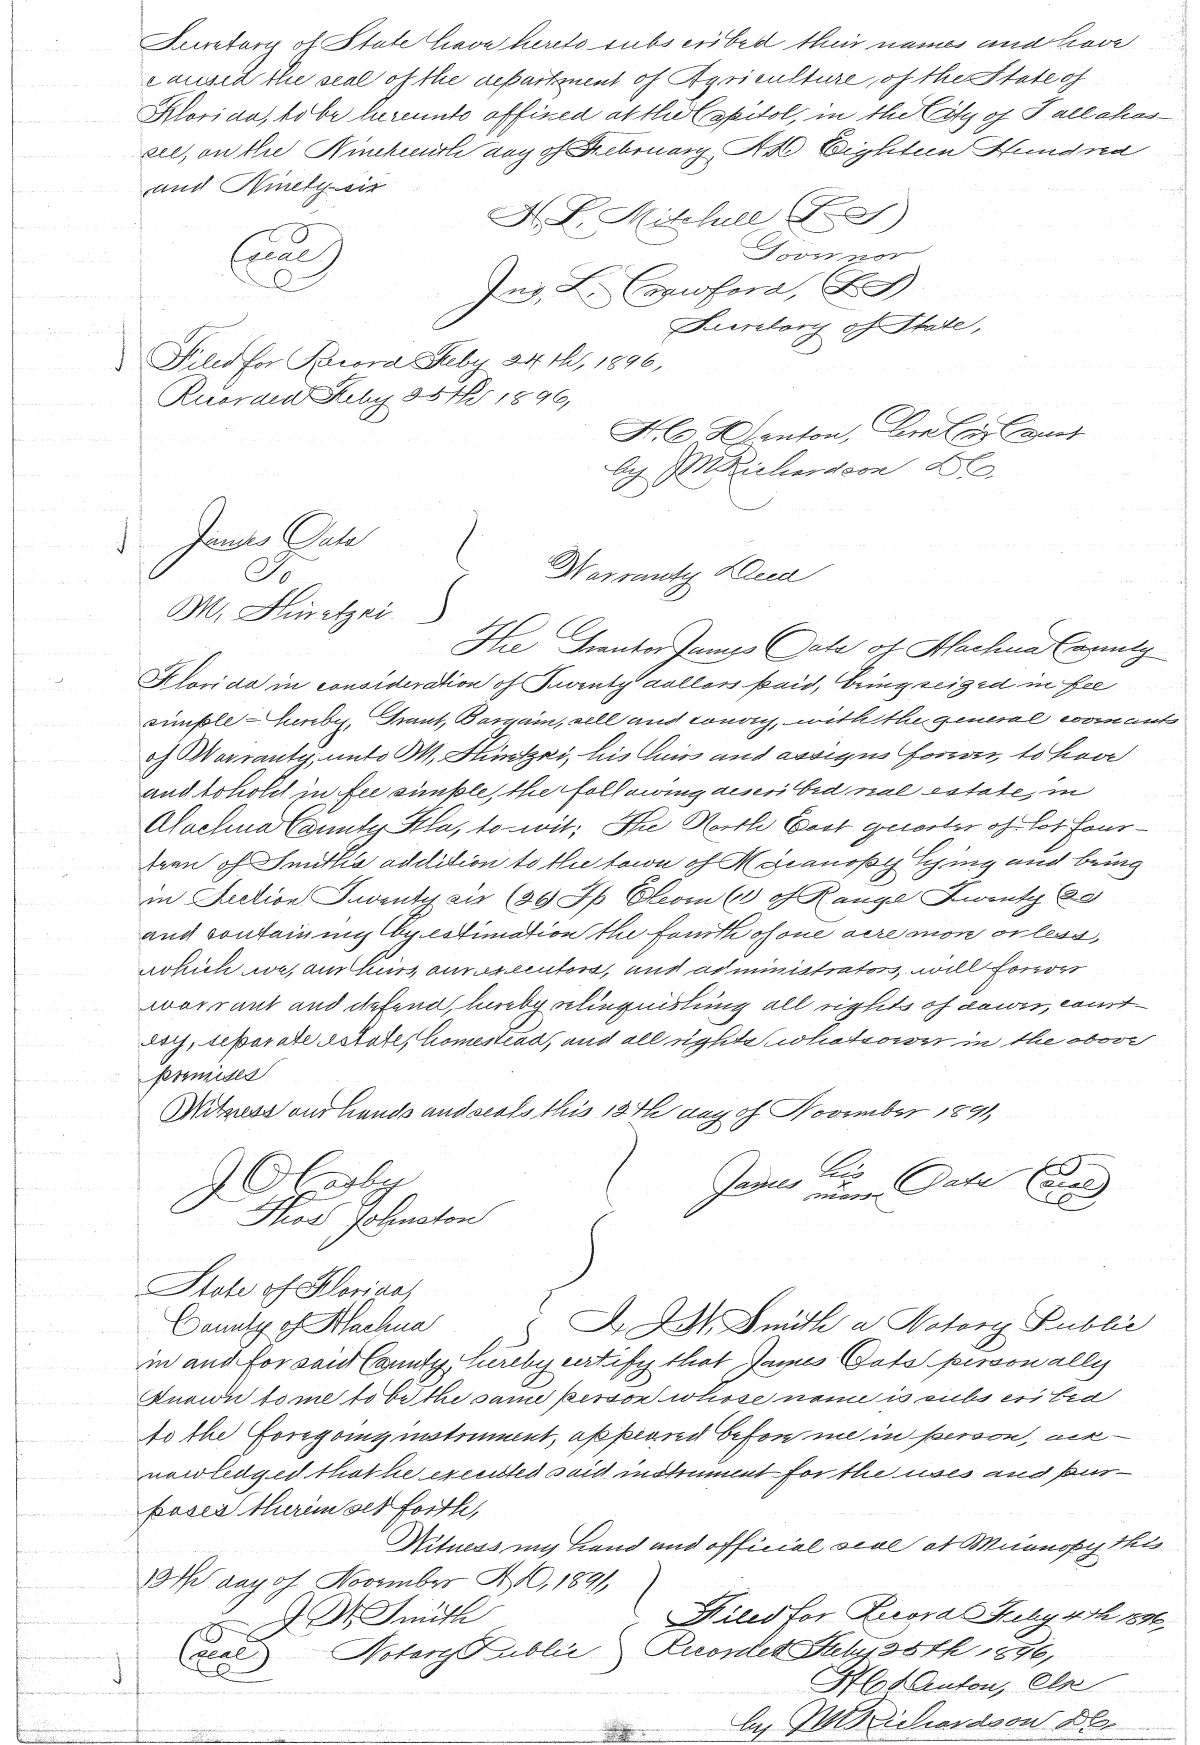 Secretary of State have hereto subscribed their names and have
caused the seal of the department of Agriculture, of the State of
Florida, to be hereunto affixed at the Capitol, in the City of Tallahas-
see, on the Nineteenth day of February, A.D. Eighteen Hundred
and Ninety-six
H. L. Mitchell (L.S)
Governor
(seal)
Jno, L. Crawford, (LS)
Secretary of State,
Filed for Record Feby 24th, 1896,
Recorded Feby 25th 1896,
H.C. Denton, Clerk Cir Court
by JM Richardson D.C.
James Cato
To
M, Shiretzki
Warranty Deed
The Grantor James Cato of Alachua County
Florida in consideration of Twenty dollars paid, being seized in fee
simple - hereby, Grant, Bargain, sell and convey, with the general covenants
of Warranty, unto M, his heirs and assigns forever, to have
and to hold in fee simple, the following described real estate, in
Alachua County Fla, to-wit; The North East quarter of Lot four-
teen of Smith's addition to the town of Micanopy lying and being
in Section Twenty six (26) Tp Eleven (11) of Range Twenty (20
and containing by estimation the fourth of one acre more or less,
which we, our heirs, our executors, and administrators, will forever
warrant and defend, hereby relinquishing all rights of dower, court-
esy, separate estate, homestead, and all rights whatsoever in the above
premises
Witness our hands and seals, this 13th day of November 1891,
J O
Thos Johnston
James his mark Cato (seal)
State of Florida,
County of Alachua
I, J.W. Smith a Notary Public
in and for said County, hereby certify that James Cato personally
known to me to be the same person whose name is subscribed
to the foregoing instrument, appeared before me in person, ack-
nowledged that he executed said instrument for the uses and pur-
poses therein set forth,
Witness my hand and official seal at Micanopy this
13th day of November A.D, 1891,
J W. Smith
(seal) Notary Public
Filed for Record Feby 4th 1896,
Recorded Feby 25th 1896,
H.C. Denton, Clk
by JM Richardson D.C.